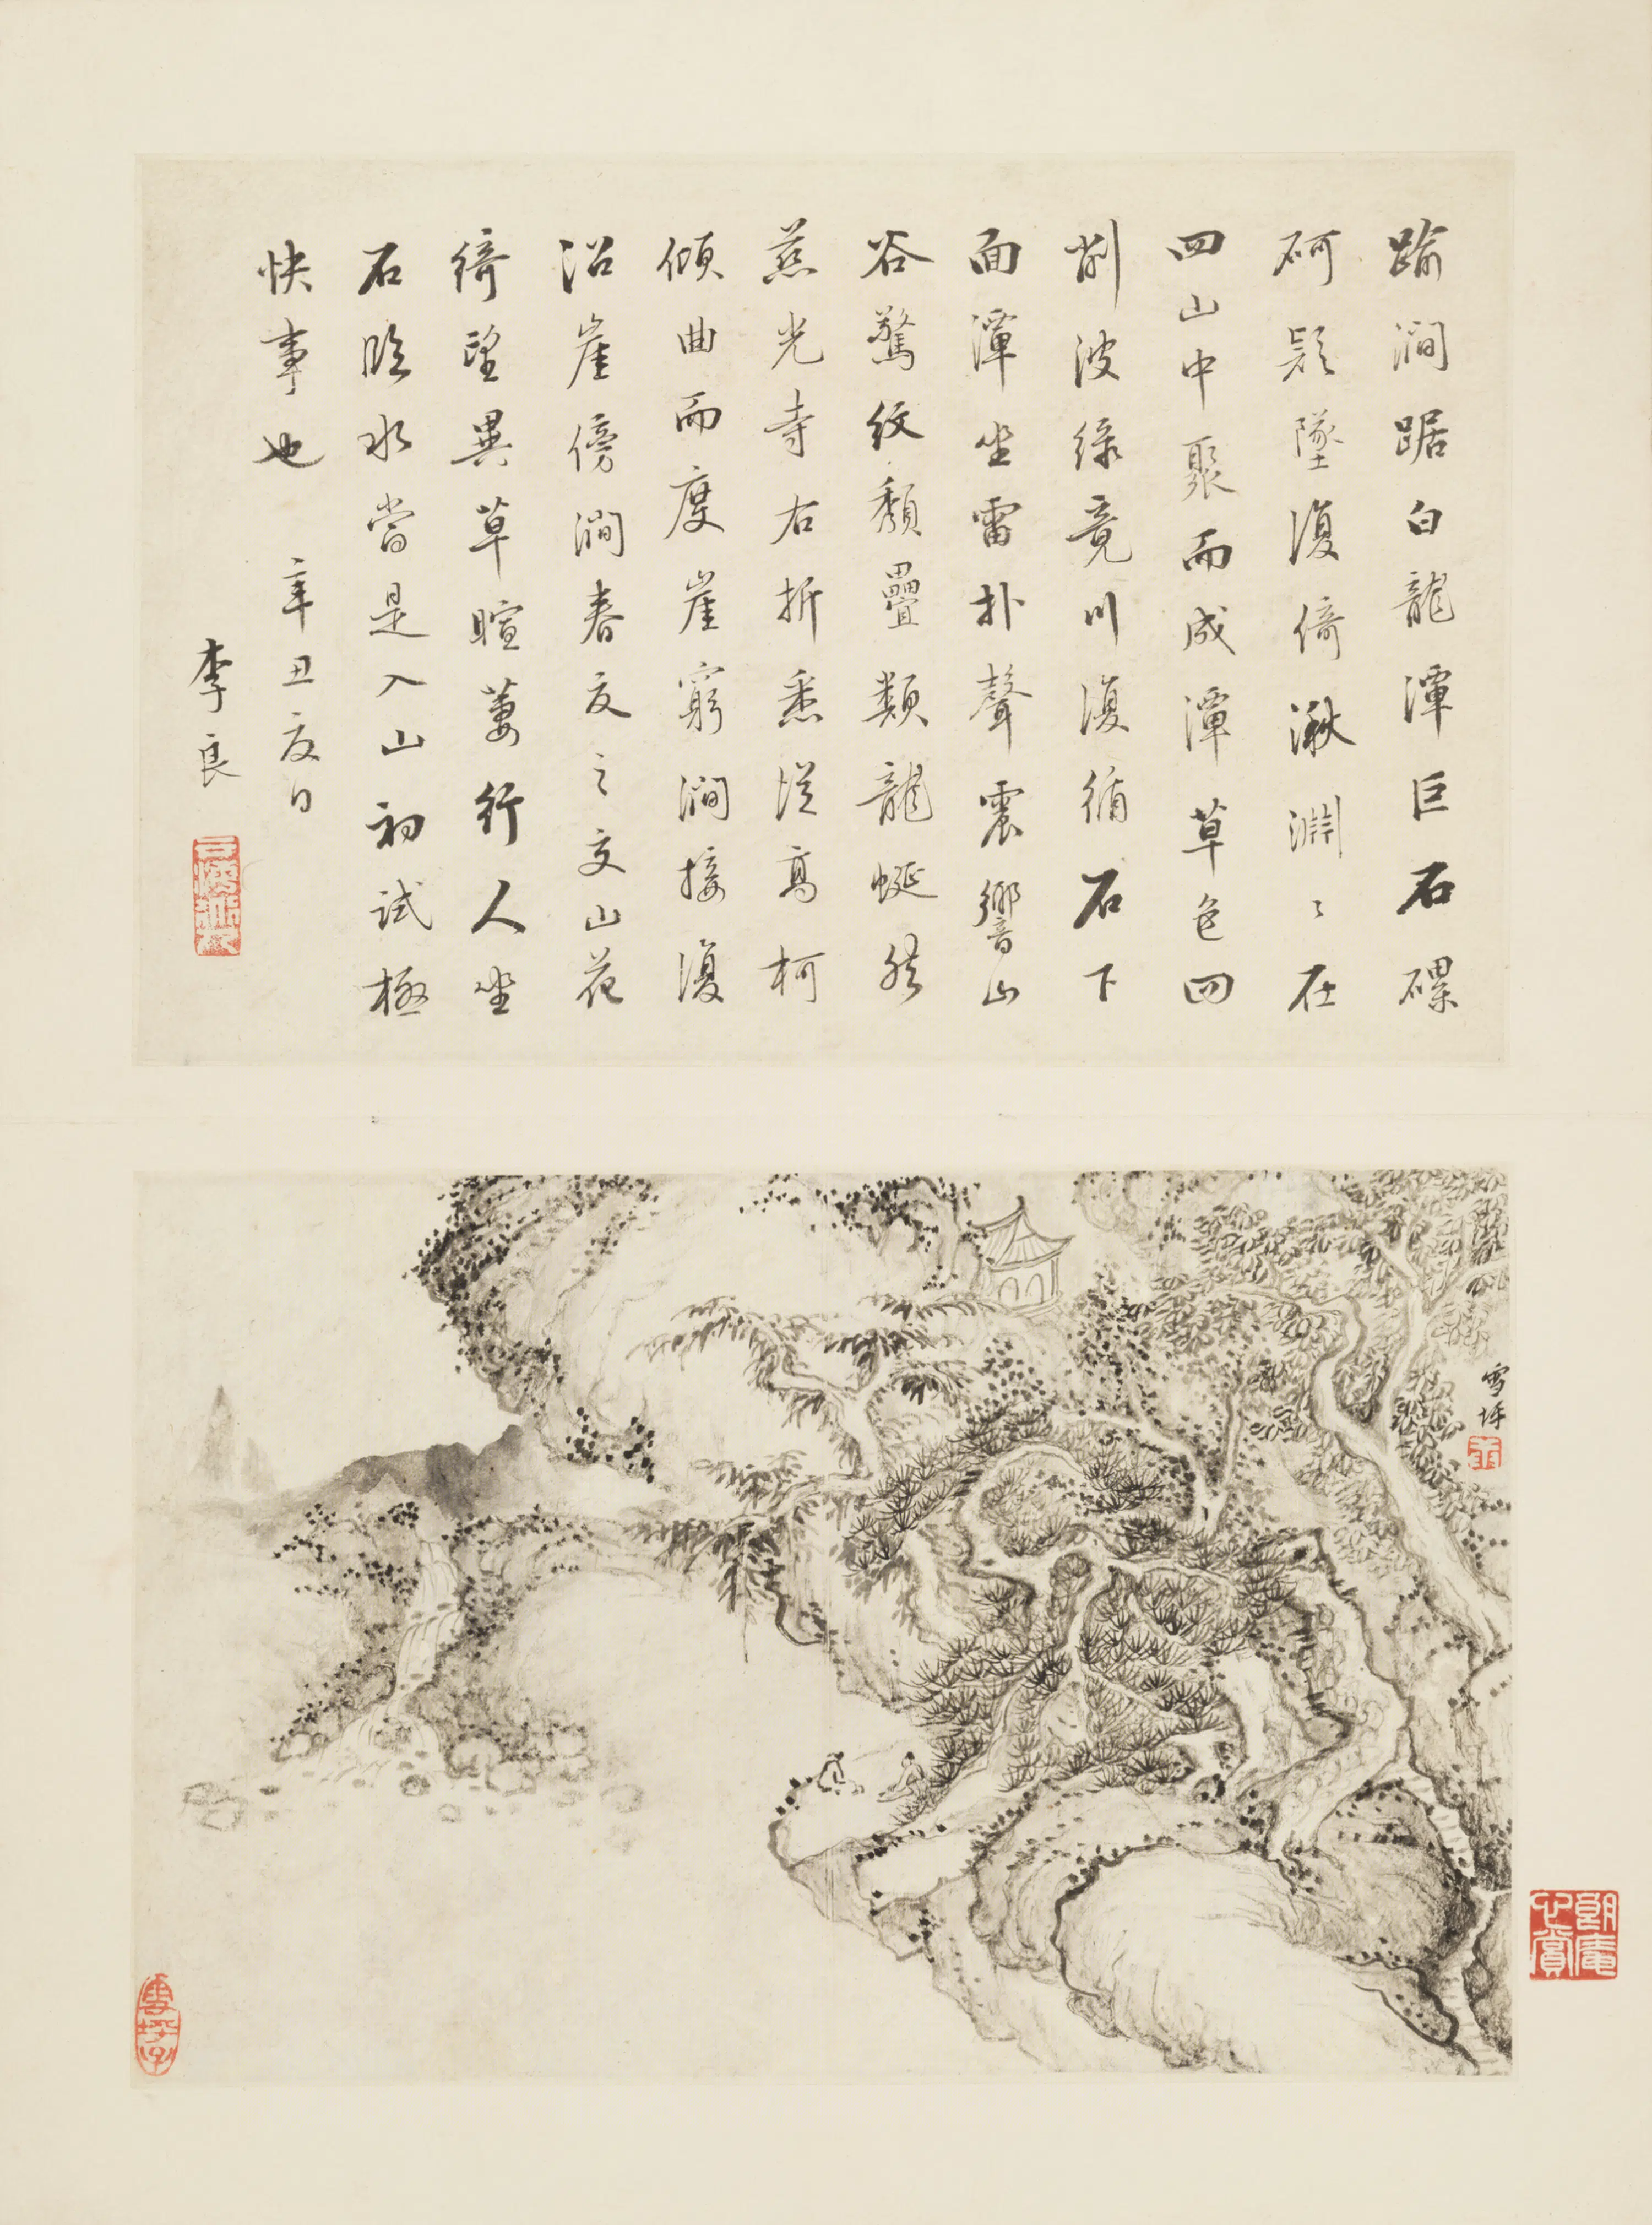 踰澗踞白龍潭巨石磥
砢疑墜復倚湫淵〻在
四山中聚而成潭草色四
削波綠竟川復循石下
面潭坐雷扑聲震響山
谷驚紋頹疊類龍蜒然
慈光寺右折悉從高柯
傾曲而度崖窮澗接復
沿崖傍澗春夏之交山花
綺望異草暄萋行人坐
石臨水當是入山初試極
快事也 辛丑夏日
李良
雪坪
雪坪子
朗庵
心賞